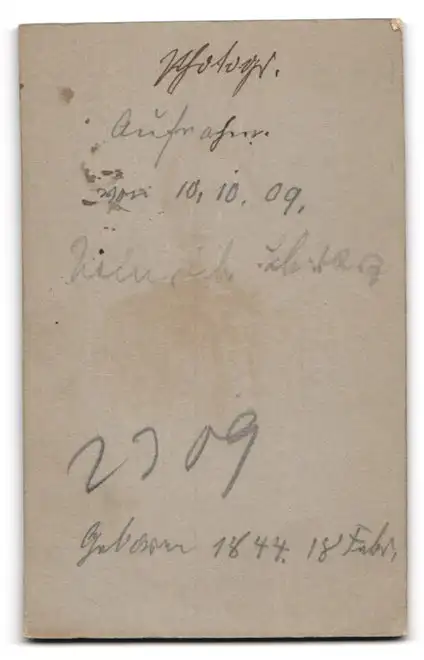 Photogr.
Aufnahm.
von 10. 10. 09.
Heinrich
2309
Geboren 1844. 18 Febr.